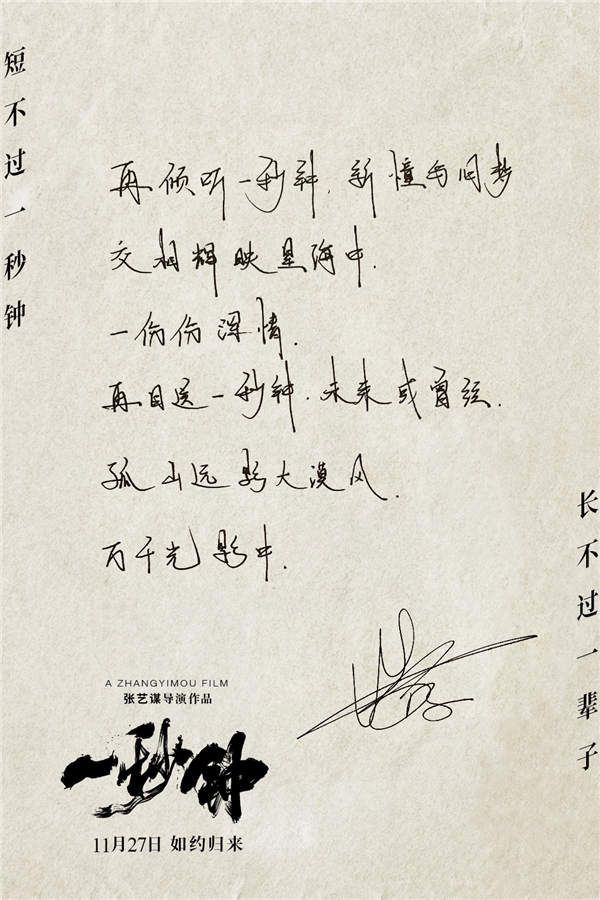 短不过一秒钟
再倾听一秒钟，新憧与旧梦
交相辉映星海中.
一份份深情.
再目送一秒钟.未来或曾经.
孤山远影大漠风.
万千光影中.
长不过一辈子
A ZHANGYIMOU FILM
张艺谋导演作品
一秒钟
11月27日 如约归来